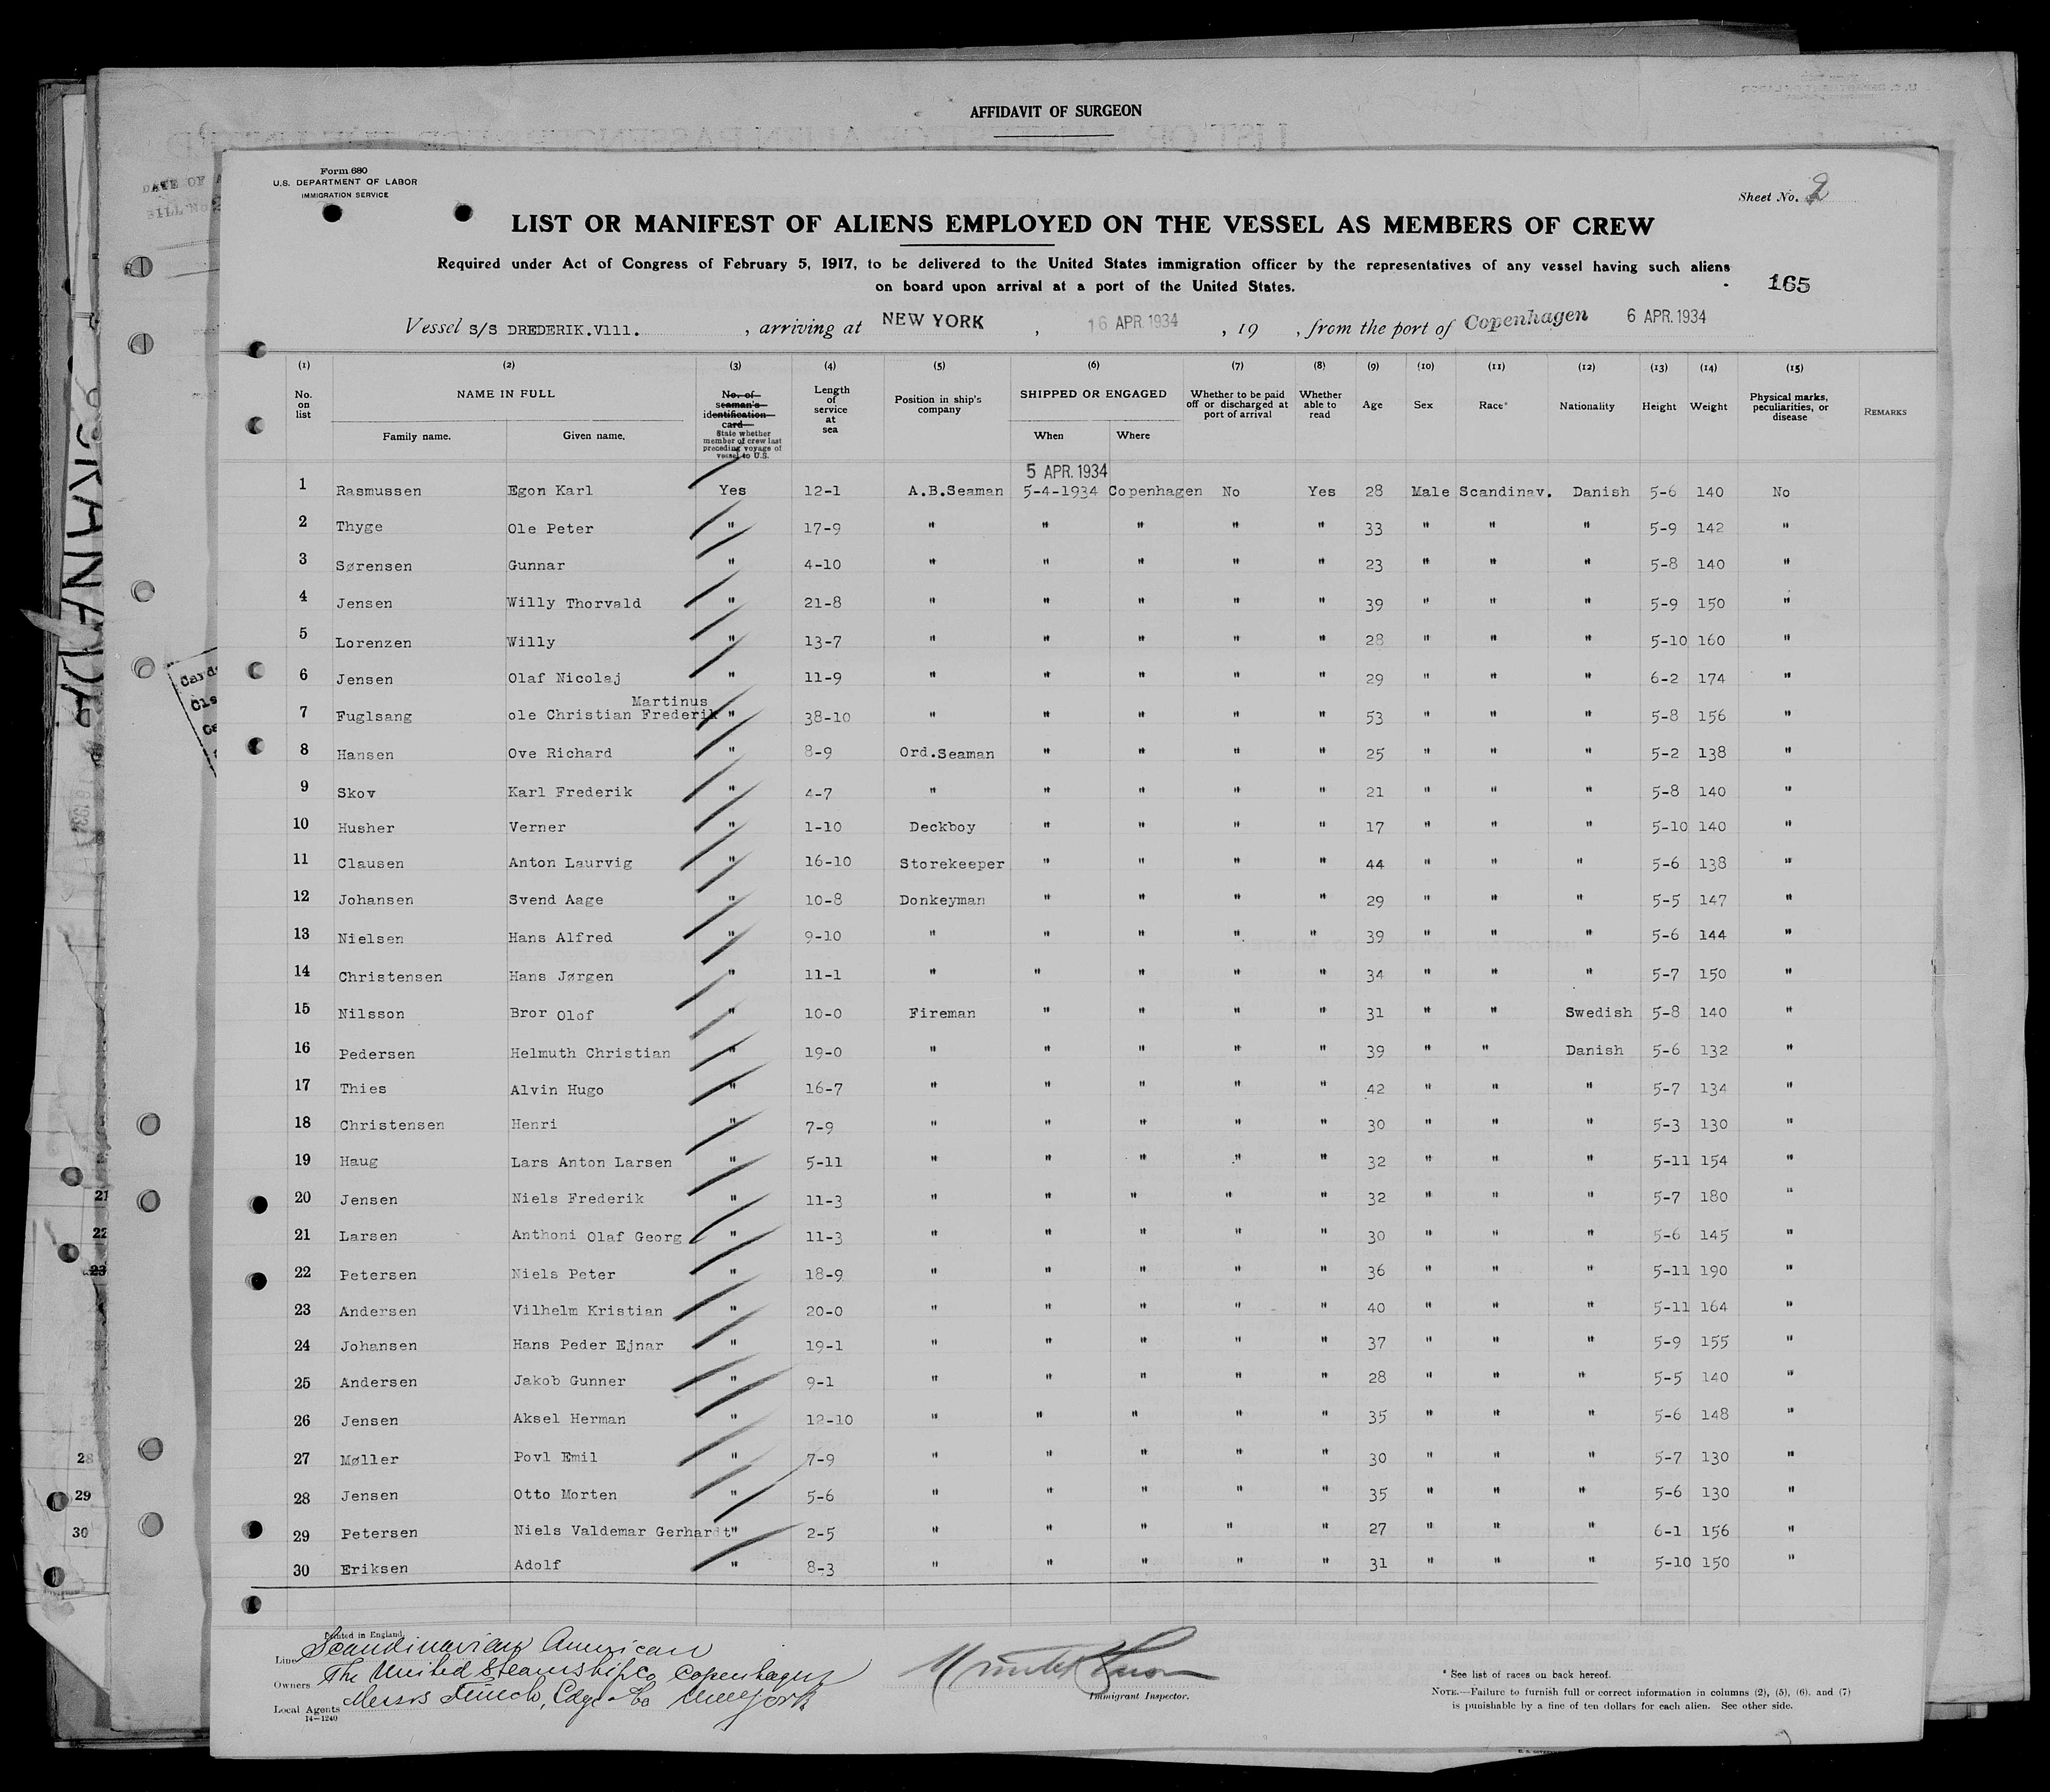 AFFIDAVIT OF SURGEON
Form 680
U.S. DEPARTMENT OF LABOR
IMMIGRATION SERVICE
Sheet No. 2
LIST OR MANIFEST OF ALIENS EMPLOYED ON THE VESSEL AS MEMBERS OF CREW
Required under Act of Congress of February 5, 1917, to be delivered to the United States immigration officer by the representatives of any vessel having such aliens
on board upon arrival at a port of the United States.
165
Vessel S/S DREDERIK.V111. , arriving at NEW YORK , 16 APR. 1934 , 19 , from the port of Copenhagen 6 APR. 1934
(1) (2) (3) (4) (5) (6) (7) (8) (9) (10) (11) (12) (13) (14) (15)
No. on list NAME IN FULL Family name. Given name. No. of seaman's identification card State whether member of crew last preceding voyage of vessel to U.S. Length of service at sea Position in ship's company SHIPPED OR ENGAGED When Where Whether to be paid off or discharged at port of arrival Whether able to read Age Sex Race* Nationality Height Weight Physical marks, peculiarities, or disease REMARKS
5 APR. 1934
1 Rasmussen Egon Karl Yes 12-1 A.B.Seaman 5-4-1934 Copenhagen No Yes 28 Male Scandinav. Danish 5-6 140 No
2 Thyge Ole Peter " 17-9 " " " " " 33 " " " 5-9 142 "
3 Sørensen Gunnar " 4-10 " " " " " 23 " " " 5-8 140 "
4 Jensen Willy Thorvald " 21-8 " " " " " 39 " " " 5-9 150 "
5 Lorenzen Willy " 13-7 " " " " " 28 " " " 5-10 160 "
6 Jensen Olaf Nicolaj " 11-9 " " " " " 29 " " " 6-2 174 "
Martinus
7 Fuglsang ole Christian Frederik " 38-10 " " " " " 53 " " " 5-8 156 "
8 Hansen Ove Richard " 8-9 Ord.Seaman " " " " 25 " " " 5-2 138 "
9 Skov Karl Frederik " 4-7 " " " " " 21 " " " 5-8 140 "
10 Husher Verner " 1-10 Deckboy " " " " 17 " " " 5-10 140 "
11 Clausen Anton Laurvig " 16-10 Storekeeper " " " " 44 " " " 5-6 138 "
12 Johansen Svend Aage " 10-8 Donkeyman " " " " 29 " " " 5-5 147 "
13 Nielsen Hans Alfred " 9-10 " " " " " 39 " " " 5-6 144 "
14 Christensen Hans Jørgen " 11-1 " " " " " 34 " " " 5-7 150 "
15 Nilsson Bror Olof " 10-0 Fireman " " " " 31 " " Swedish 5-8 140 "
16 Pedersen Helmuth Christian " 19-0 " " " " " 39 " " Danish 5-6 132 "
17 Thies Alvin Hugo " 16-7 " " " " " 42 " " " 5-7 134 "
18 Christensen Henri " 7-9 " " " " " 30 " " " 5-3 130 "
19 Haug Lars Anton Larsen " 5-11 " " " " " 32 " " " 5-11 154 "
20 Jensen Niels Frederik " 11-3 " " " " " 32 " " " 5-7 180 "
21 Larsen Anthoni Olaf Georg " 11-3 " " " " " 30 " " " 5-6 145 "
22 Petersen Niels Peter " 18-9 " " " " " 36 " " " 5-11 190 "
23 Andersen Vilhelm Kristian " 20-0 " " " " " 40 " " " 5-11 164 "
24 Johansen Hans Peder Ejnar " 19-1 " " " " " 37 " " " 5-9 155 "
25 Andersen Jakob Gunner " 9-1 " " " " " 28 " " " 5-5 140 "
26 Jensen Aksel Herman " 12-10 " " " " " 35 " " " 5-6 148 "
27 Møller Povl Emil " 7-9 " " " " " 30 " " " 5-7 130 "
28 Jensen Otto Morten " 5-6 " " " " " 35 " " " 5-6 130 "
29 Petersen Niels Valdemar Gerhardt " 2-5 " " " " " 27 " " " 6-1 156 "
30 Eriksen Adolf " 8-3 " " " " " 31 " " " 5-10 150 "
Printed in England.
Line Scandinavian American
Owners The United Steamship Co Copenhagen
Local Agents Messrs Funch, Edye & Co New York
14-1240
Immigrant Inspector.
* See list of races on back hereof.
NOTE.—Failure to furnish full or correct information in columns (2), (5), (6), and (7)
is punishable by a fine of ten dollars for each alien. See other side.
21
22
23
28
29
30